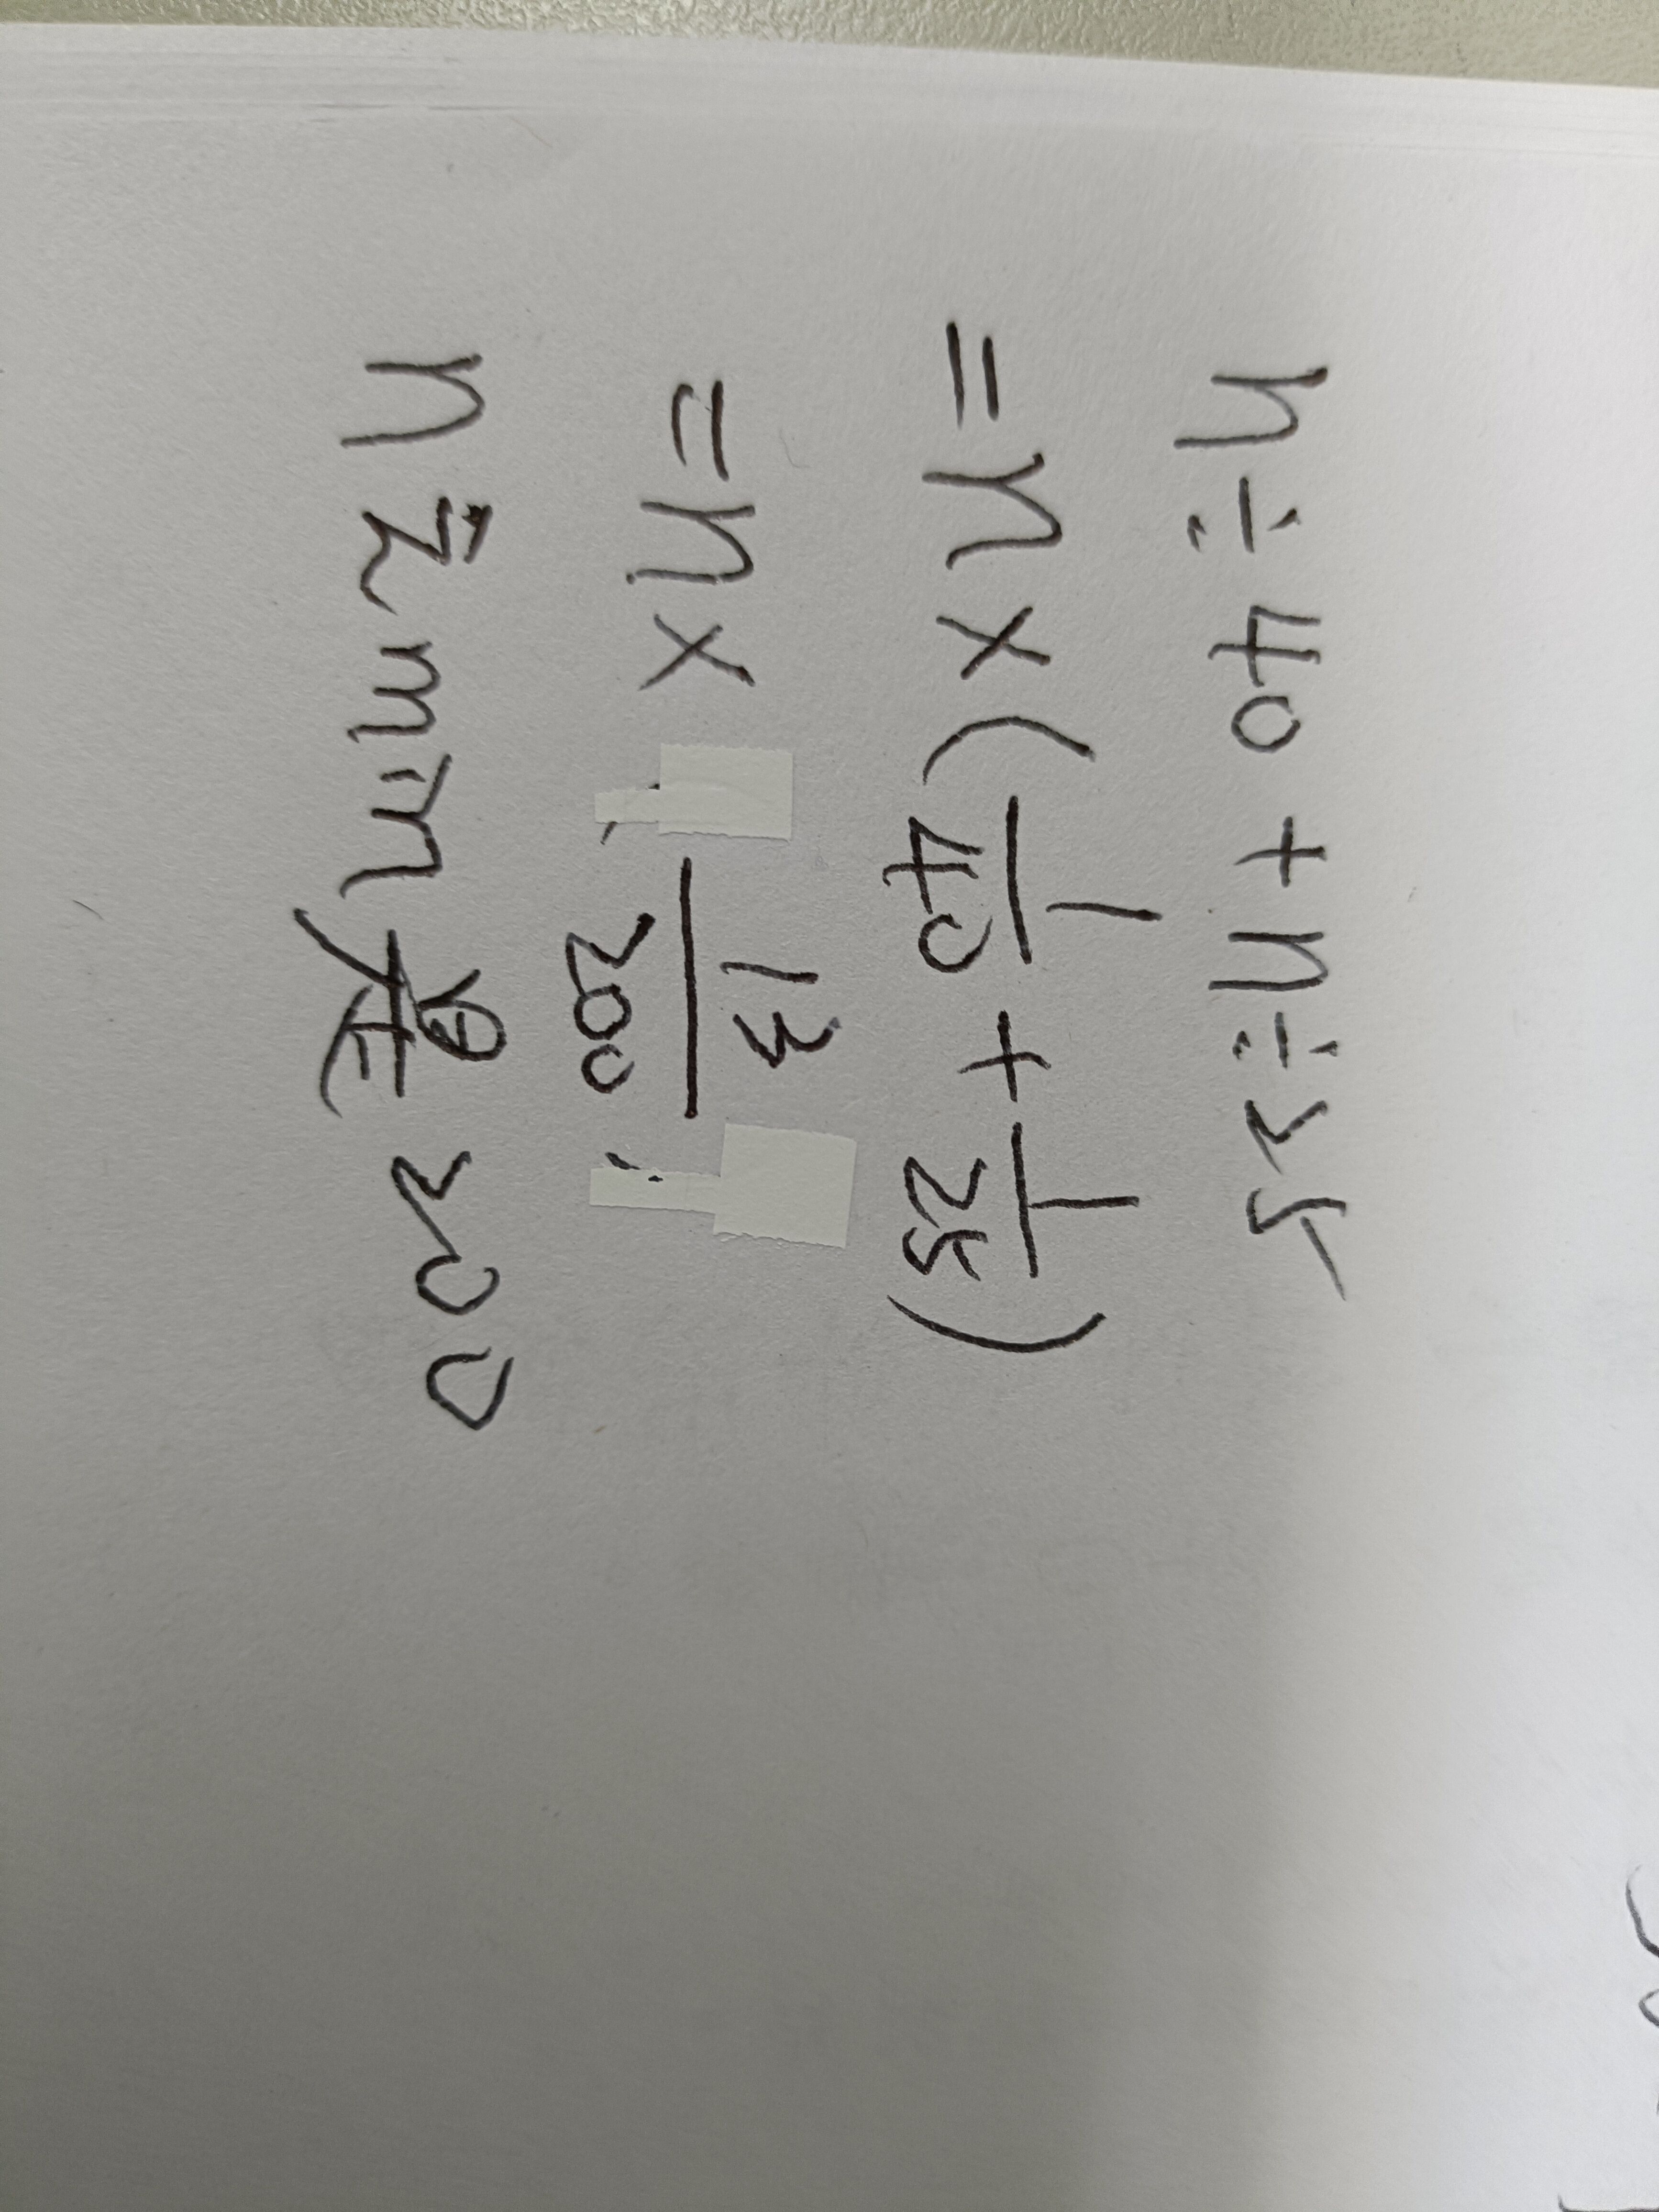 n ÷ 40 + n ÷ 25
= n × ( 1/40 + 1/25 )
= n × 13/200
n minimum 200